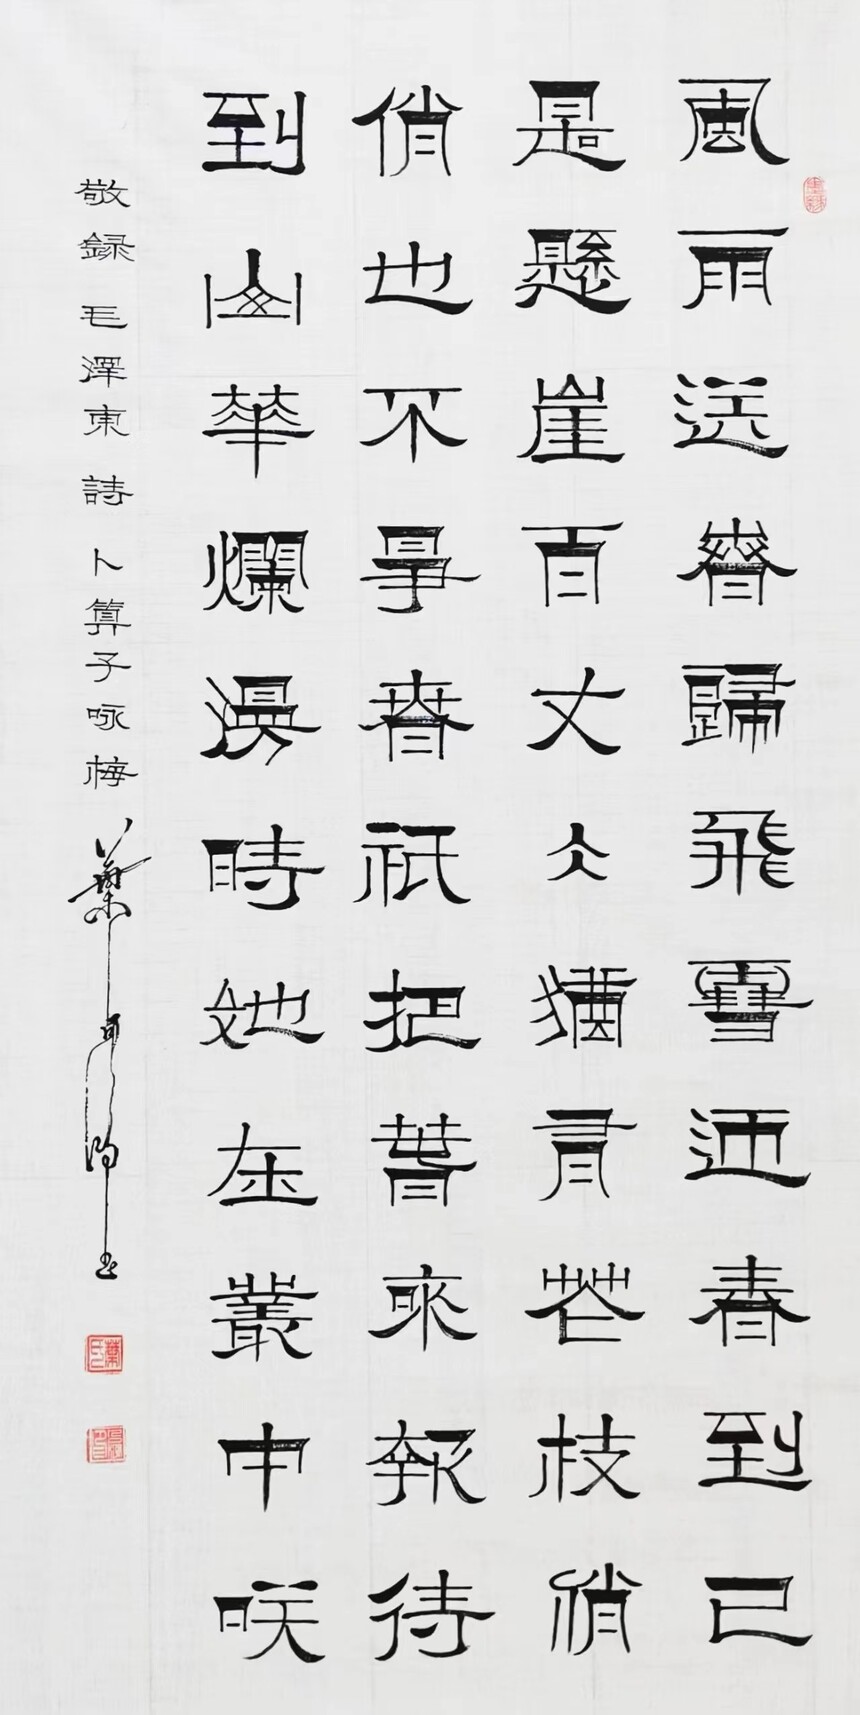 風雨送春歸飛雪迎春到已
是懸崖百丈仌猶有花枝俏
俏也不爭春祇把春來報待
到山華爛漫時她在叢中咲
敬録毛澤東詩卜算子咏梅葉